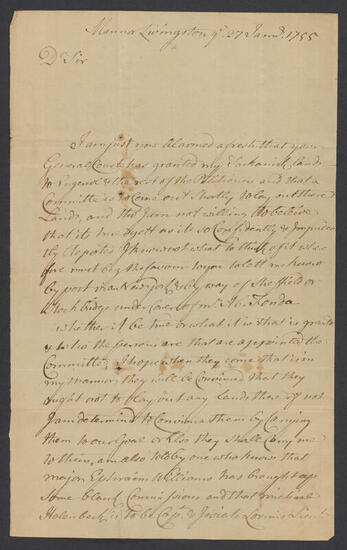 Manna Livingston ye 27 Janu. 1755
Dr Sir
I am just now allarmed afresh that your
General Court has granted my Tachanick Lands
to Engersol & the rest of the Petitioners and that a
Committe is to Come out shortly to lay out these
Lands, and tho I am not willing to believe
that its true yett as its so Confidently &
by reported I know not what to think of it where
fore must beg the favour to you to lett me know
by post via New york & by way of Sheffield or
Stockbridge under Cover to mr
whether it be true or what it is that is granted
& who the persons are that are appointed the
Committee, I hope when they Come that is in
my mannor they will be Convinced that they
ought not to lay out any Lands there if not
I am determind to Convince them by Carrying
them to our Goal or Else they shall Carry me
to theirs, am also told by one who knows that
major Ephraem Williams has brought up
some blank Commissions and that michael
Holenbeck is to be Capt & Josiah Loomis Lieut